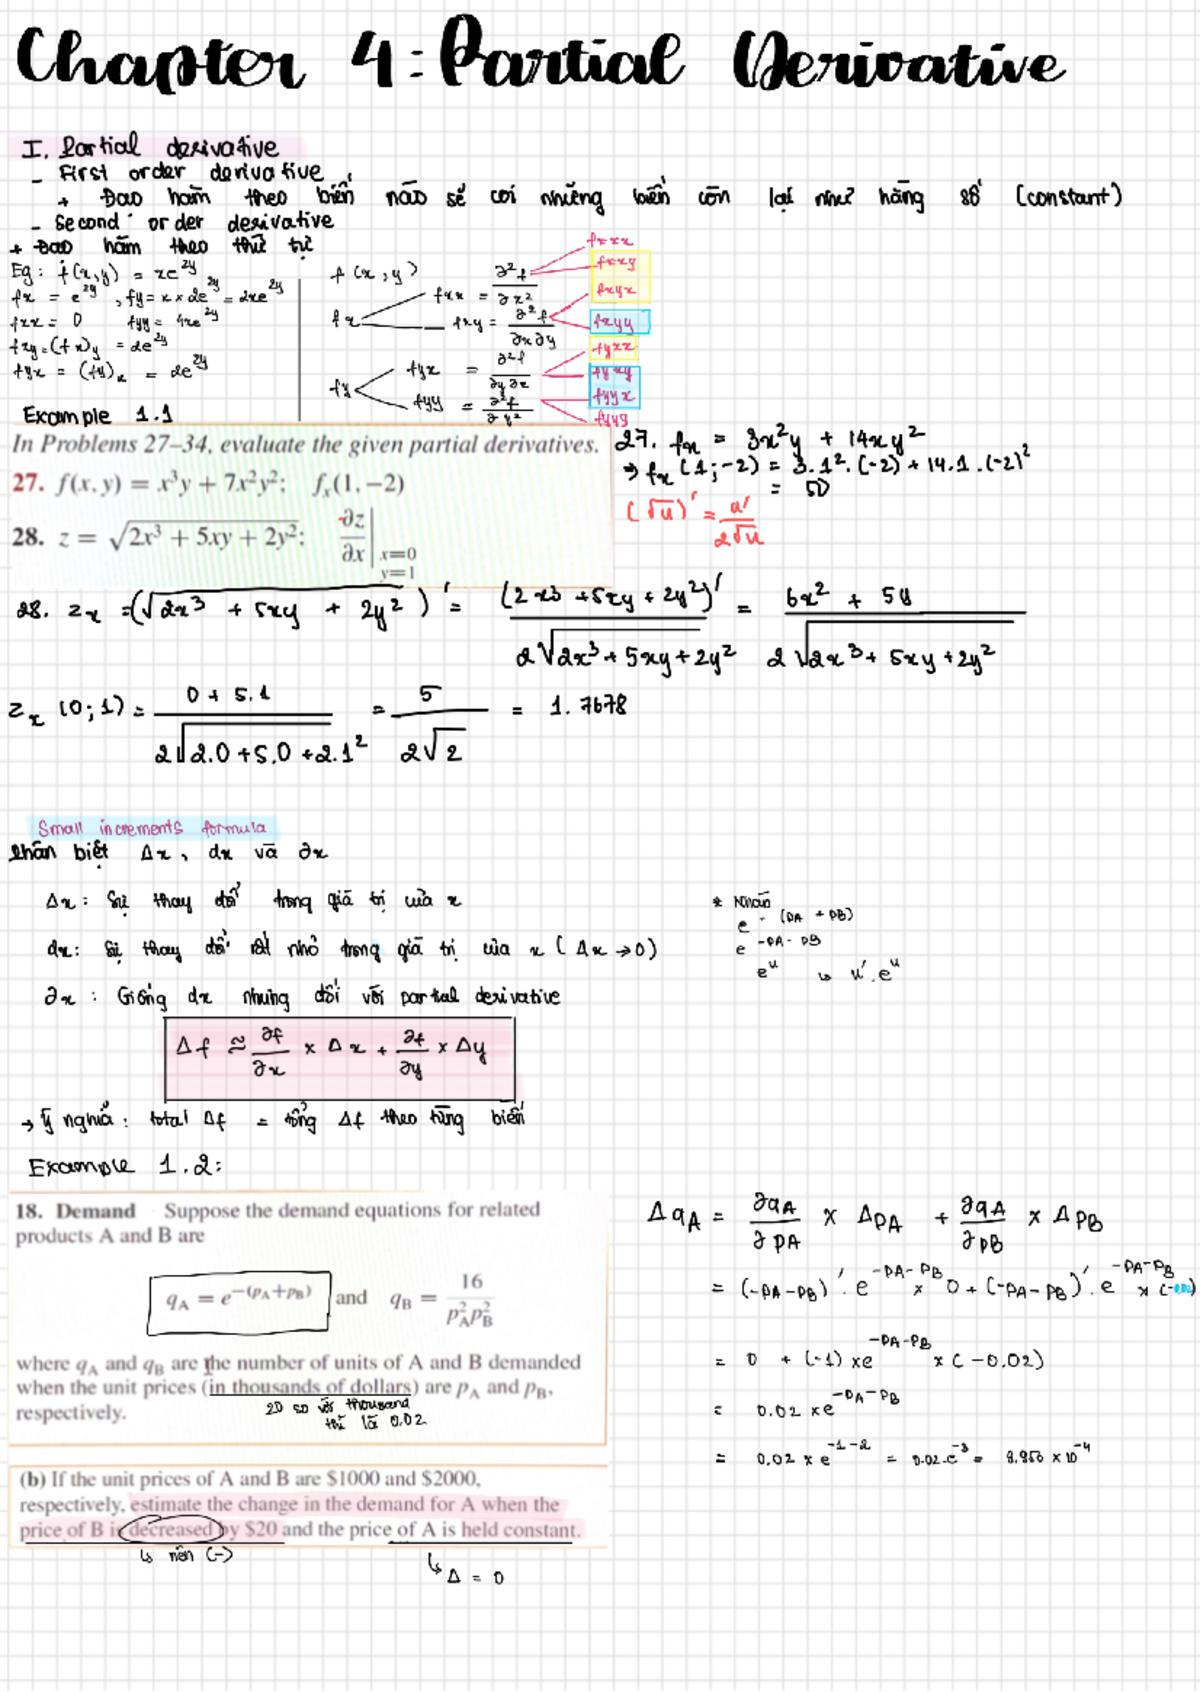 Chapter 4: Partial Derivative
I. Partial derivative
- First order derivative
+ Đạo hàm theo biến nào sẽ coi những biến còn lại như hằng số (constant)
- Second order derivative
+ Đạo hàm theo thứ tự
Eg: f(x,y) = xe^2y
fx = e^2y, fy = x × 2e^2y = 2xe^2y
fxx = 0 fyy = 4xe^2y
fxy = (fx)y = 2e^2y
fyx = (fy)x = 2e^2y
f(x,y)
fx
fxx = ∂²f/∂x²
fxy = ∂²f/∂x∂y
fy
fyx = ∂²f/∂y∂x
fyy = ∂²f/∂y²
fxxx
fxxy
fxyx
fxyy
fyxx
fyxy
fyyx
fyyy
Example 1.1
In Problems 27–34, evaluate the given partial derivatives.
27. f(x, y) = x³y + 7x²y²; fx(1, −2)
28. z = √(2x³ + 5xy + 2y²); ∂z/∂x | x=0 y=1
27. fx = 3x²y + 14xy²
→ fx(1;-2) = 3.1².(-2) + 14.1.(-2)²
= 50
(√u)' = u'/2√u
28. zx = (√(2x³ + 5xy + 2y²))' = (2x³ + 5xy + 2y²)' / 2√(2x³ + 5xy + 2y²) = (6x² + 5y) / 2√(2x³ + 5xy + 2y²)
zx(0;1) = (0 + 5.1) / 2√(2.0 + 5.0 + 2.1²) = 5/2√2 = 1.7678
Small increments formula
Phân biệt Δx, dx và ∂x
Δx: Sự thay đổi trong giá trị của x
dx: Sự thay đổi rất nhỏ trong giá trị của x (Δx → 0)
∂x: Giống dx nhưng đối với partial derivative
* Nháp
e^-(PA + PB)
e^-PA-PB
e^u ↳ u'.e^u
Δf ≈ ∂f/∂x × Δx + ∂f/∂y × Δy
→ Ý nghĩa: total Δf = tổng Δf theo từng biến
Example 1.2:
18. Demand Suppose the demand equations for related
products A and B are
qA = e^−(pA+pB) and qB = 16/p²A p²B
where qA and qB are the number of units of A and B demanded
when the unit prices (in thousands of dollars) are pA and pB,
respectively.
20 so với thousand
thì là 0.02
(b) If the unit prices of A and B are $1000 and $2000,
respectively, estimate the change in the demand for A when the
price of B is decreased by $20 and the price of A is held constant.
↳ nên (-)
↳ Δ = 0
ΔqA = ∂qA/∂PA × ΔPA + ∂qA/∂PB × ΔPB
= (-PA-PB)'.e^-PA-PB × 0 + (-PA-PB)'.e^-PA-PB × (-0.02)
= 0 + (-1) × e^-PA-PB × (-0.02)
= 0.02 × e^-PA-PB
= 0.02 × e^-1-2 = 0.02.e^-3 = 9.956 × 10^-4